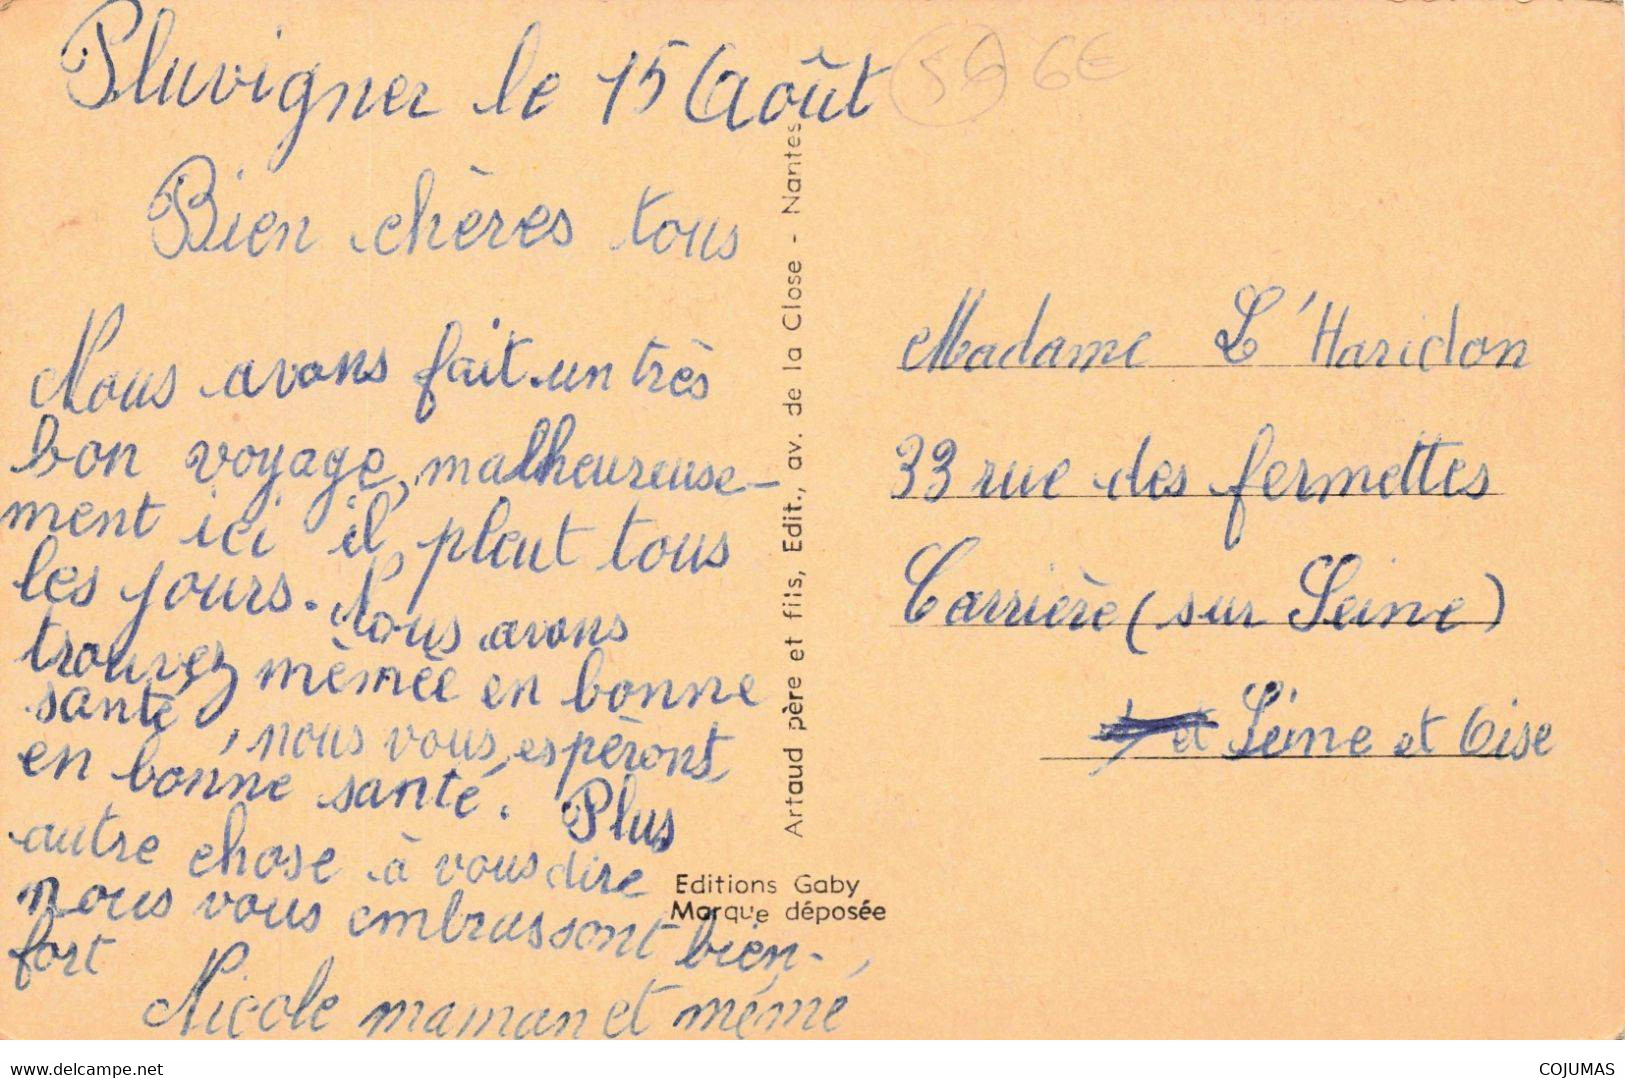 Pluvigner le 15 Août
56 6€
Bien chères tous
Nous avons fait un très
bon voyage, malheureuse-
ment ici il pleut tous
les jours. Nous avons
trouvez mèmée en bonne
santé, nous vous espèront
en bonne santé. Plus
autre chose à vous dire
nous vous embrassont bien
fort
Nicole maman et mémé
Artaud père et fils, Edit., av. de la Close - Nantes
Editions Gaby
Marque déposée
Madame L'Haridon
33 rue des fermettes
Carrière (sur Seine)
et Seine et Oise
www.delcampe.net
COJUMAS